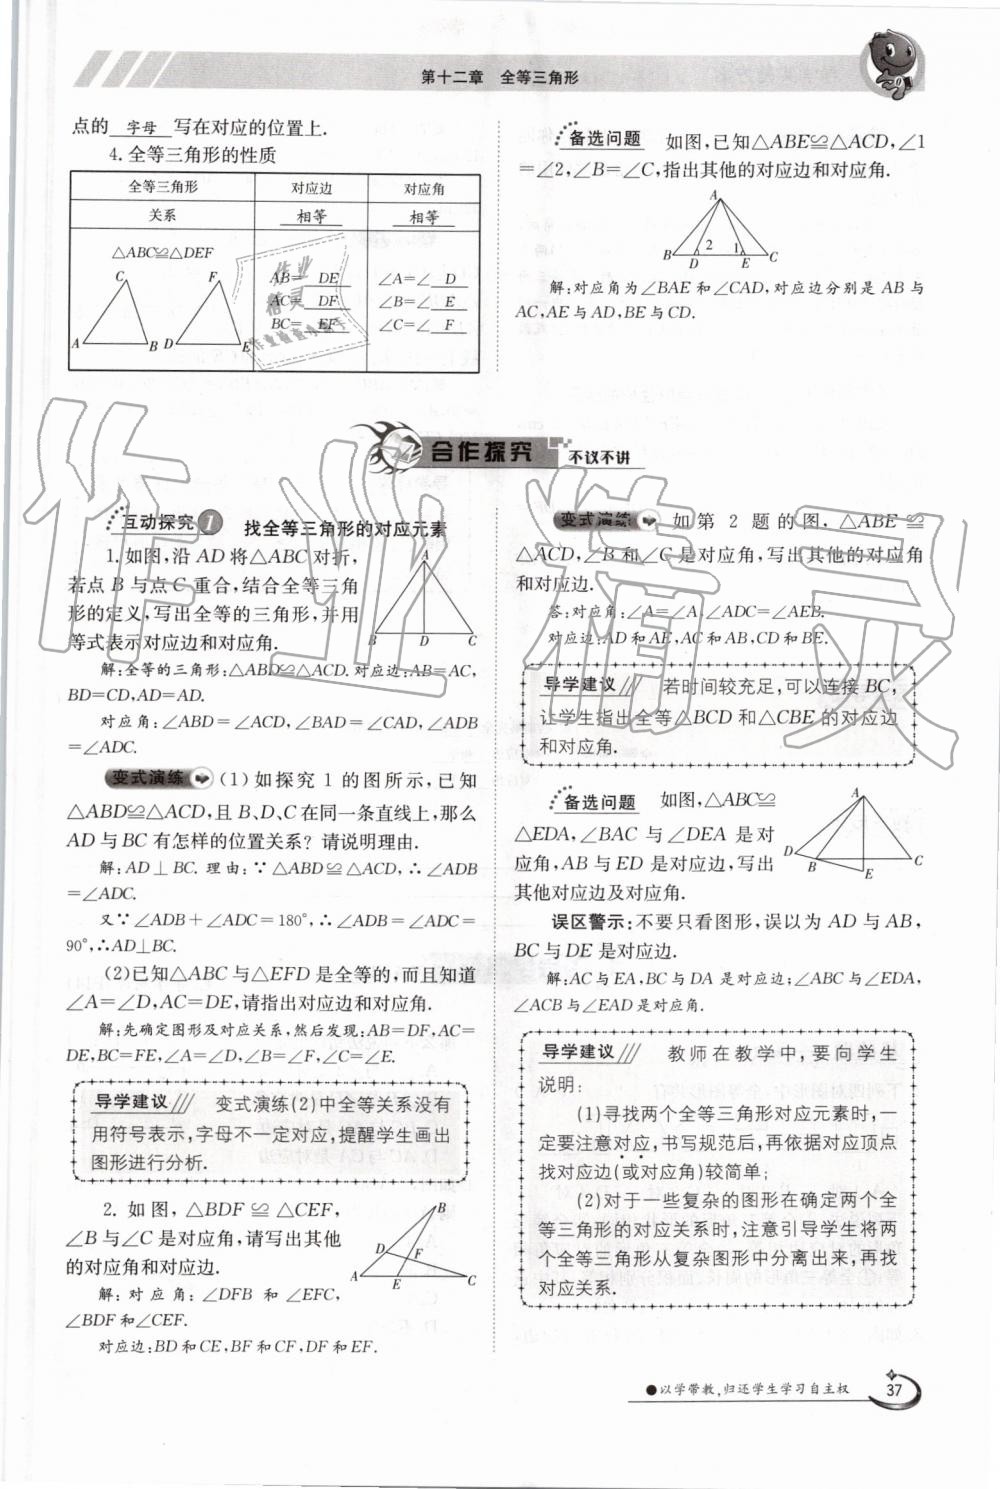 第十二章 全等三角形
点的 字母 写在对应的位置上.
4.全等三角形的性质
全等三角形 对应边 对应角
关系 相等 相等
△ABC≌△DEF
C F
A B D E
AB= DE ∠A=∠ D
AC= DF ∠B=∠ E
BC= EF ∠C=∠ F
备选问题 如图,已知△ABE≌△ACD,∠1
=∠2,∠B=∠C,指出其他的对应边和对应角.
A
2 1
B D E C
解:对应角为∠BAE和∠CAD,对应边分别是AB与
AC,AE与AD,BE与CD.
合作探究 不议不讲
互动探究1 找全等三角形的对应元素
1.如图,沿AD将△ABC对折,
若点B与点C重合,结合全等三角
形的定义,写出全等的三角形,并用
等式表示对应边和对应角.
A
B D C
解:全等的三角形:△ABD≌△ACD.对应边:AB=AC,
BD=CD,AD=AD.
对应角:∠ABD=∠ACD,∠BAD=∠CAD,∠ADB
=∠ADC.
变式演练 (1)如探究1的图所示,已知
△ABD≌△ACD,且B、D、C在同一条直线上,那么
AD与BC有怎样的位置关系?请说明理由.
解:AD⊥BC.理由:∵△ABD≌△ACD,∴∠ADB
=∠ADC.
又∵∠ADB+∠ADC=180°,∴∠ADB=∠ADC=
90°,∴AD⊥BC.
(2)已知△ABC与△EFD是全等的,而且知道
∠A=∠D,AC=DE,请指出对应边和对应角.
解:先确定图形及对应关系,然后发现:AB=DF,AC=
DE,BC=FE,∠A=∠D,∠B=∠F,∠C=∠E.
导学建议 变式演练(2)中全等关系没有
用符号表示,字母不一定对应,提醒学生画出
图形进行分析.
2.如图,△BDF≌△CEF,
∠B与∠C是对应角,请写出其他
的对应角和对应边.
B
D F
A E C
解:对应角:∠DFB和∠EFC,
∠BDF和∠CEF.
对应边:BD和CE,BF和CF,DF和EF.
变式演练 如第2题的图,△ABE≌
△ACD,∠B和∠C是对应角,写出其他的对应角
和对应边.
答:对应角:∠A=∠A,∠ADC=∠AEB.
对应边:AD和AE,AC和AB,CD和BE.
导学建议 若时间较充足,可以连接BC,
让学生指出全等△BCD和△CBE的对应边
和对应角.
备选问题 如图,△ABC≌
△EDA,∠BAC与∠DEA是对
应角,AB与ED是对应边,写出
其他对应边及对应角.
A
D B E C
误区警示:不要只看图形,误以为AD与AB,
BC与DE是对应边.
解:AC与EA,BC与DA是对应边;∠ABC与∠EDA,
∠ACB与∠EAD是对应角.
导学建议 教师在教学中,要向学生
说明:
(1)寻找两个全等三角形对应元素时,一
定要注意对应,书写规范后,再依据对应顶点
找对应边(或对应角)较简单;
(2)对于一些复杂的图形在确定两个全
等三角形的对应关系时,注意引导学生将两
个全等三角形从复杂图形中分离出来,再找
对应关系.
●以学带教,归还学生学习自主权 37
作业精灵